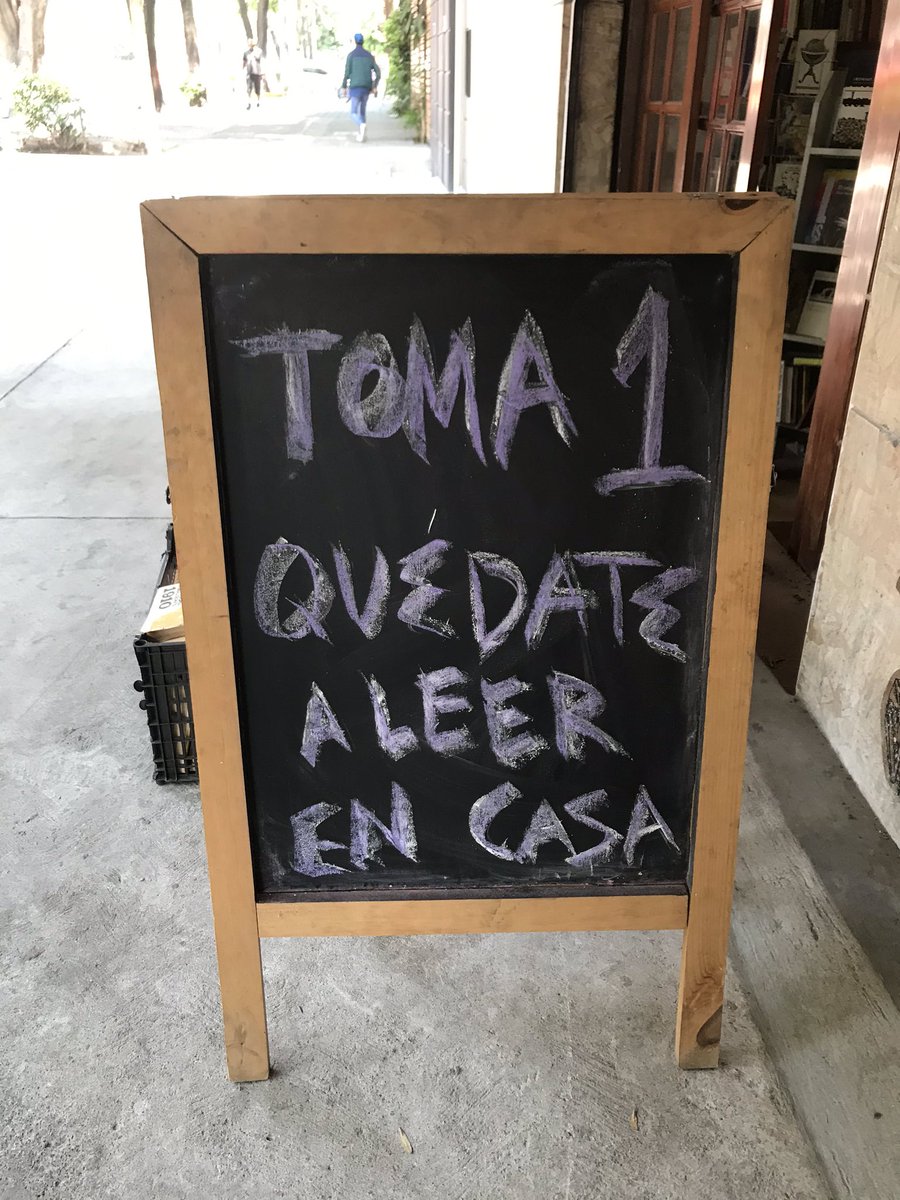 TOMA 1
QUÉDATE
A LEER
EN CASA
1910